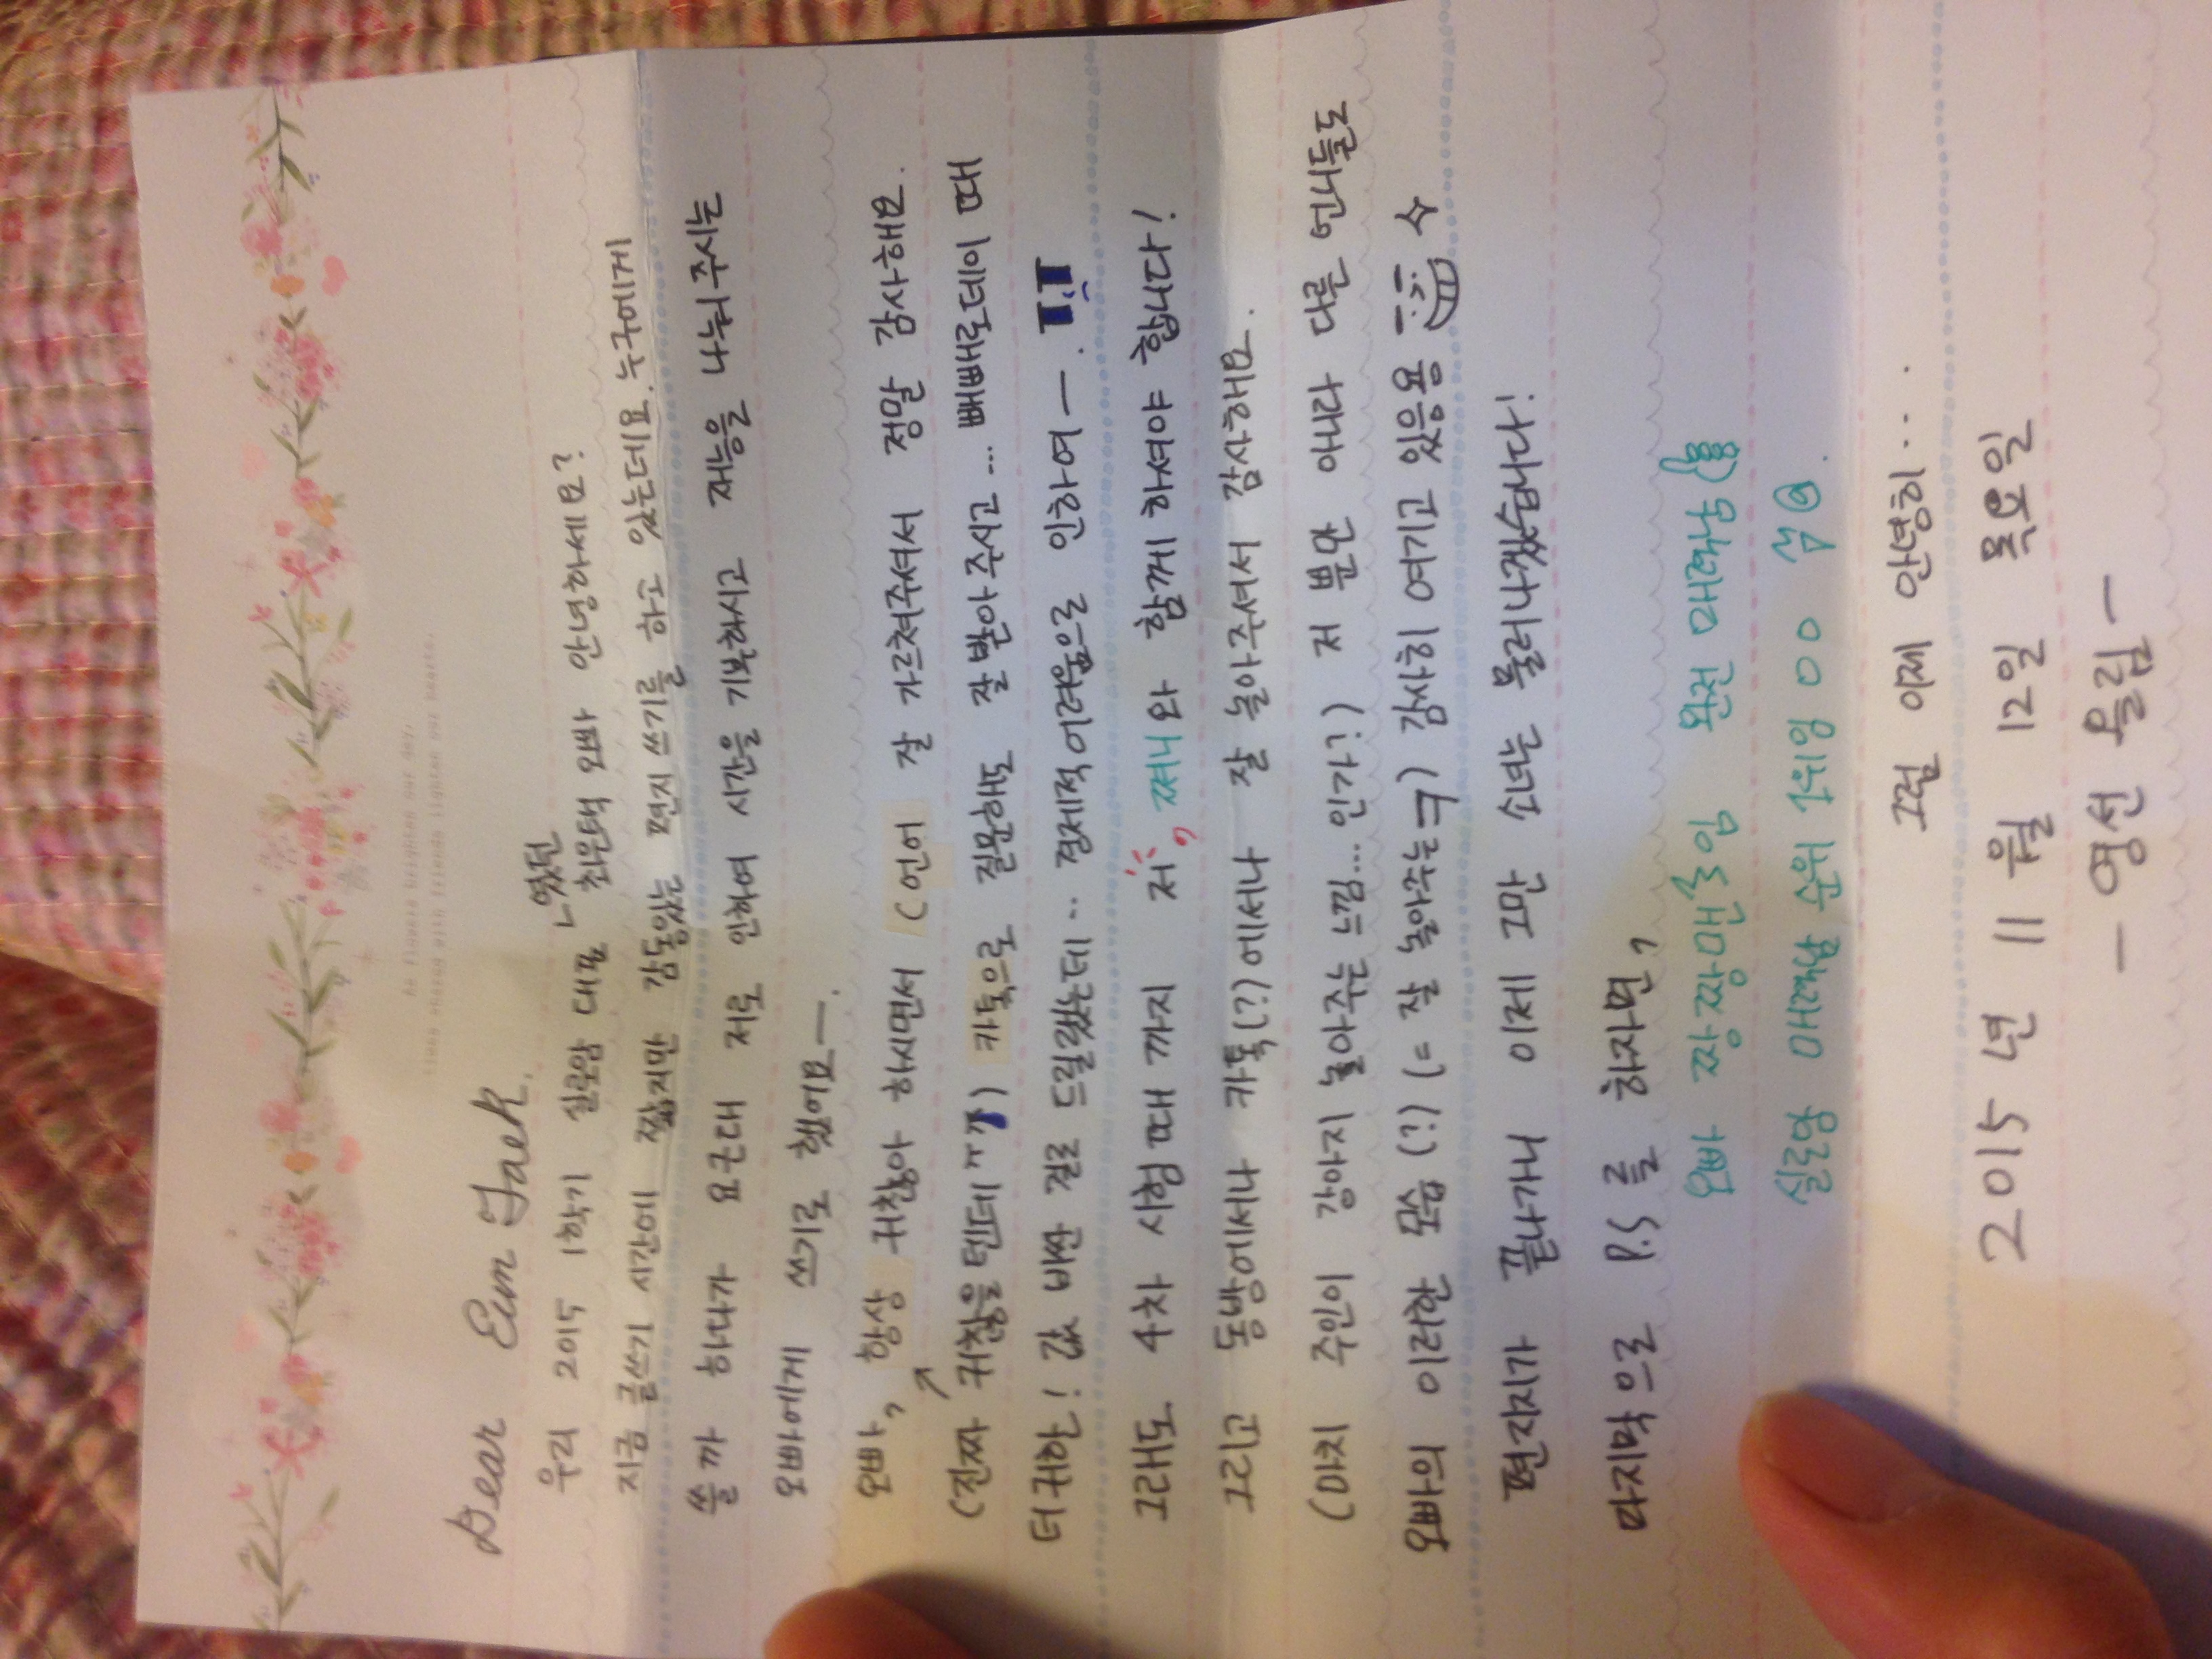 Dear Eun Taek.
우리 2015 1학기 실로암 대표였던 최은택 오빠 안녕하세요?
지금 글쓰기 시간에 짧지만 감동있는 편지 쓰기를 하고 있는데요. 누구에게
쓸까 하다가 요근래 저로 인하여 시간을 기복하시고 재능을 나눠주시는
오빠에게 쓰기로 했어요ㅡ.
오빠, 항상 귀찮아 하시면서 (언어 잘 가르쳐주셔서 정말 감사해요.
(진짜 귀찮을텐데ㅠㅠ) 카톡으로 질문해도 잘 받아주시고... 빼빼로데이 때
더 귀한! 값 비싼 걸로 드릴랬는데.. 경제적 어려움으로 인하여ㅡ. ㅠ.ㅠ
그래도 4차 시험때 까지 저, 쪄니와 함께 하셔야 합니다!
그리고 동방에서나 카톡(?)에서나 잘 놀아주셔서 감사해요.
(마치 주인이 강아지 놀아주는 느낌... 인가?) 저 뿐만 아니라 다른 언니들도
오빠의 이러한 모습(?) (= 잘 놀아주는ㅋ) 감사히 여기고 있음용 ☆
편지지가 끝나가니 이제 그만 소녀는 물러나겠습니다!
마지막으로 P.S를 하자면,
오빠 짱짱맨임 완전 매력남
실로암 애껴쌈 순위 1위임 ㅇㅇ
그럼 이제 안녕히...
2015년 11월 12일 목요일
- 영선 올림 -